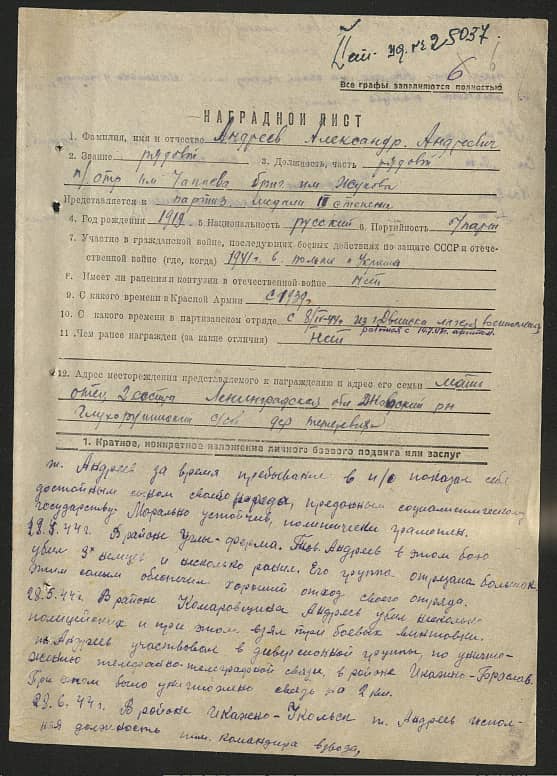 25037
6
Все графы заполняются полностью
НАГРАДНОЙ ЛИСТ
1. Фамилия, имя и отчество Андреев Александр Андреевич
2. Звание рядовой 3. Должность, часть рядовой
п/отр им Чапаева бриг. им Жукова
Представляется к партиз. медали II степени
4. Год рождения 1919 5. Национальность русский 6. Партийность б/парт
7. Участие в гражданской войне, последующих боевых действиях по защите СССР и отече-
ственной войне (где, когда) 1941 г. в
8. Имеет ли ранения и контузии в отечественной войне нет
9. С какого времени в Красной Армии с 1939 г.
10. С какого времени в партизанском отряде с из г. Двинска лагеря военнопленных
11. Чем ранее награжден (за какие отличия) нет
12. Адрес несторождения представляемого к награждению и адрес его семьи мать
отец 2 сестры Ленинградская обл Дновский рн
с/с дер
1. Краткое, конкретное изложение личного боевого подвига или заслуг
т. Андреев за время пребывания в п/о показал себя
достойным сыном своего народа, преданным социалистическому
государству. Морально устойчив, политически грамотен.
28.5.44 г. В районе Углы-ферма. Тов. Андреев в этом бою
убил 3х немцев и несколько ранил. Его группа отрезала большак
этим самым обеспечил хороший отход своего отряда.
28.5.44 г. В районе Комаровщина Андреев убил несколько
полицейских и при этом взял три боевых винтовки.
т. Андреев участвовал в диверсионной группы, по уничто-
жению телефонно-телеграфной связи, в районе Иказнь-Борослав.
При этом было уничтожено связь на 2 км.
29.6.44 г. В районе Иказно-Укольск т. Андреев испол-
няя должность пом. командира взвода,